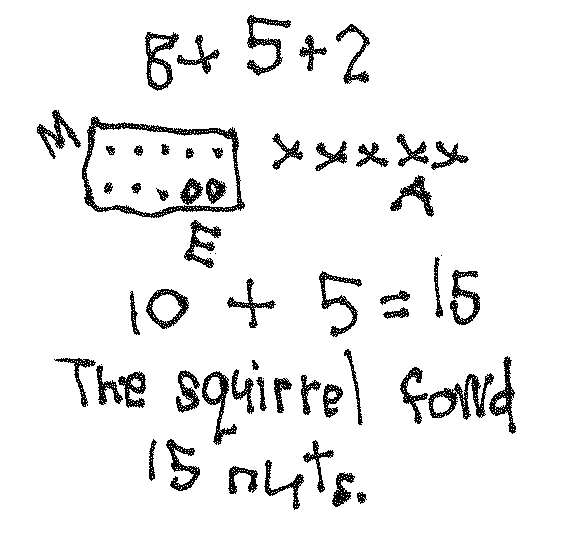 8+ 5+2
M
A
E
10 + 5=15
The squirrel fond
15 nuts.